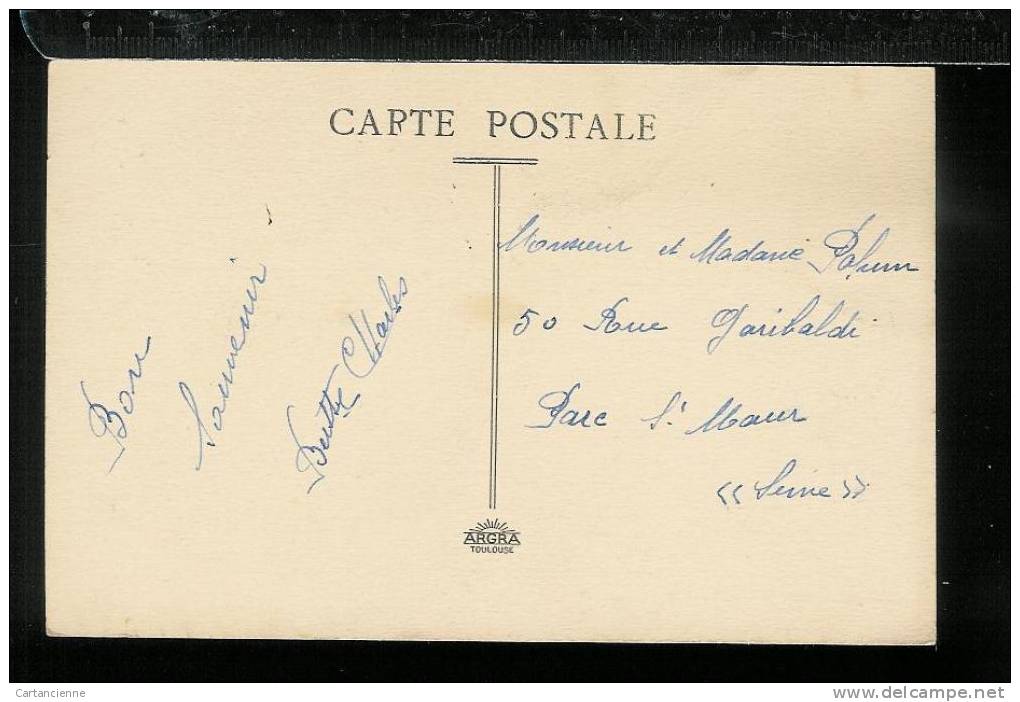 CARTE POSTALE
Bon
Souvenir
Berthe Charles
Monsieur et Madame
50 Rue Garibaldi
Parc St Maur
<< Seine >>
ARGRA
TOULOUSE
Cartancienne
www.delcampe.net